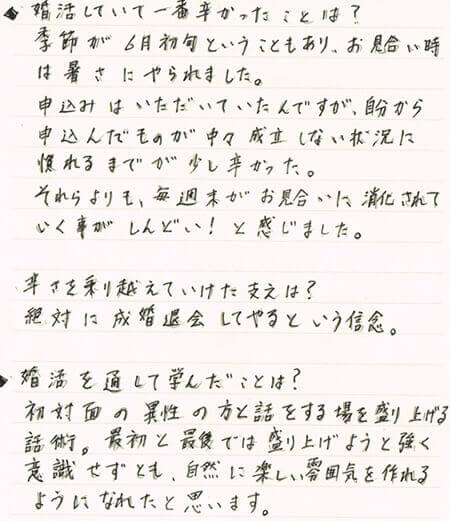 婚活していて一番辛かったことは?
季節が6月初旬ということもあり、お見合い時
は暑さにやられました。
申込みはいただいていたんですが、自分から
申込んだものが中々成立しない状況に
慣れるまでが少し辛かった。
それらよりも、毎週末がお見合いに消化されて
いく事がしんどい!と感じました。
辛さを乗り越えていけた支えは?
絶対に成婚退会してやるという信念。
婚活を通して学んだことは?
初対面の異性の方と話をする場を盛り上げる
話術。最初と最後では盛り上げようと強く
意識せずとも、自然に楽しい雰囲気を作れる
ようになれたと思います。